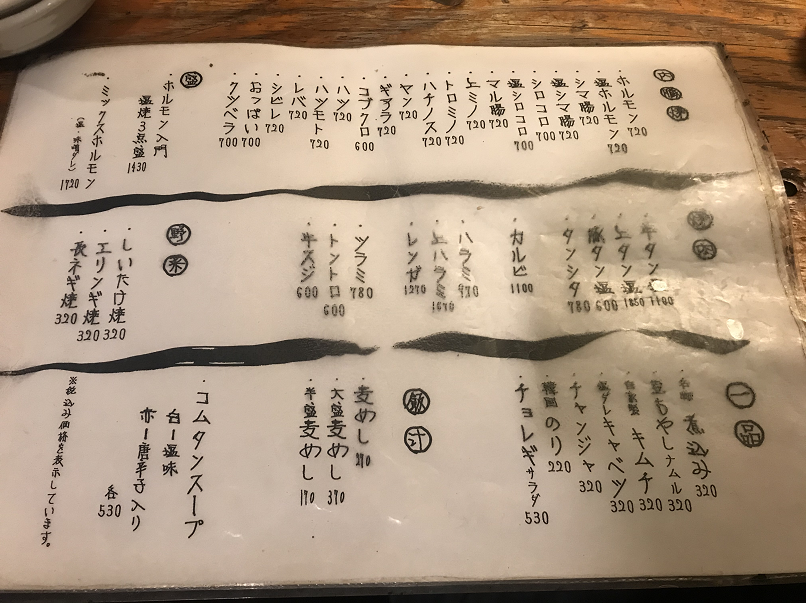 内臓焼
・ホルモン 720
・塩ホルモン 720
・シマ腸 720
・塩シマ腸 720
・シロコロ 700
・塩シロコロ 700
・マル腸 720
・上ミノ 720
・トロミノ 720
・ハチノス 720
・ヤン 720
・ギアラ 720
・コブクロ 600
・ハツ 720
・ハツモト 720
・レバ 720
・シビレ 720
・おっぱい 700
・クツベラ 700
盛
・ホルモン入門
塩焼3点盛 1430
・ミックスホルモン
(塩・味噌ダレ) 1720
焼肉
・牛タン塩 1100
・上タン塩 1850
・豚タン塩 600
・タンシタ 780
・カルビ 1100
・ハラミ 970
・上ハラミ 1670
・レンガ 1270
・ツラミ 780
・トントロ 600
・牛スジ 600
野菜
・しいたけ焼 320
・エリンギ焼 320
・長ネギ焼 320
一品
煮込み 320
・豆もやしナムル 320
・自家製キムチ 320
・塩ダレキャベツ 320
・チャンジャ 320
・韓国のり 220
・チョレギサラダ 530
飯汁
・麦めし
・大盛麦めし 390
・半盛麦めし 190
・コムタンスープ
白ー塩味
赤ー唐辛子入り
各530
※税込み価格を表示しています。